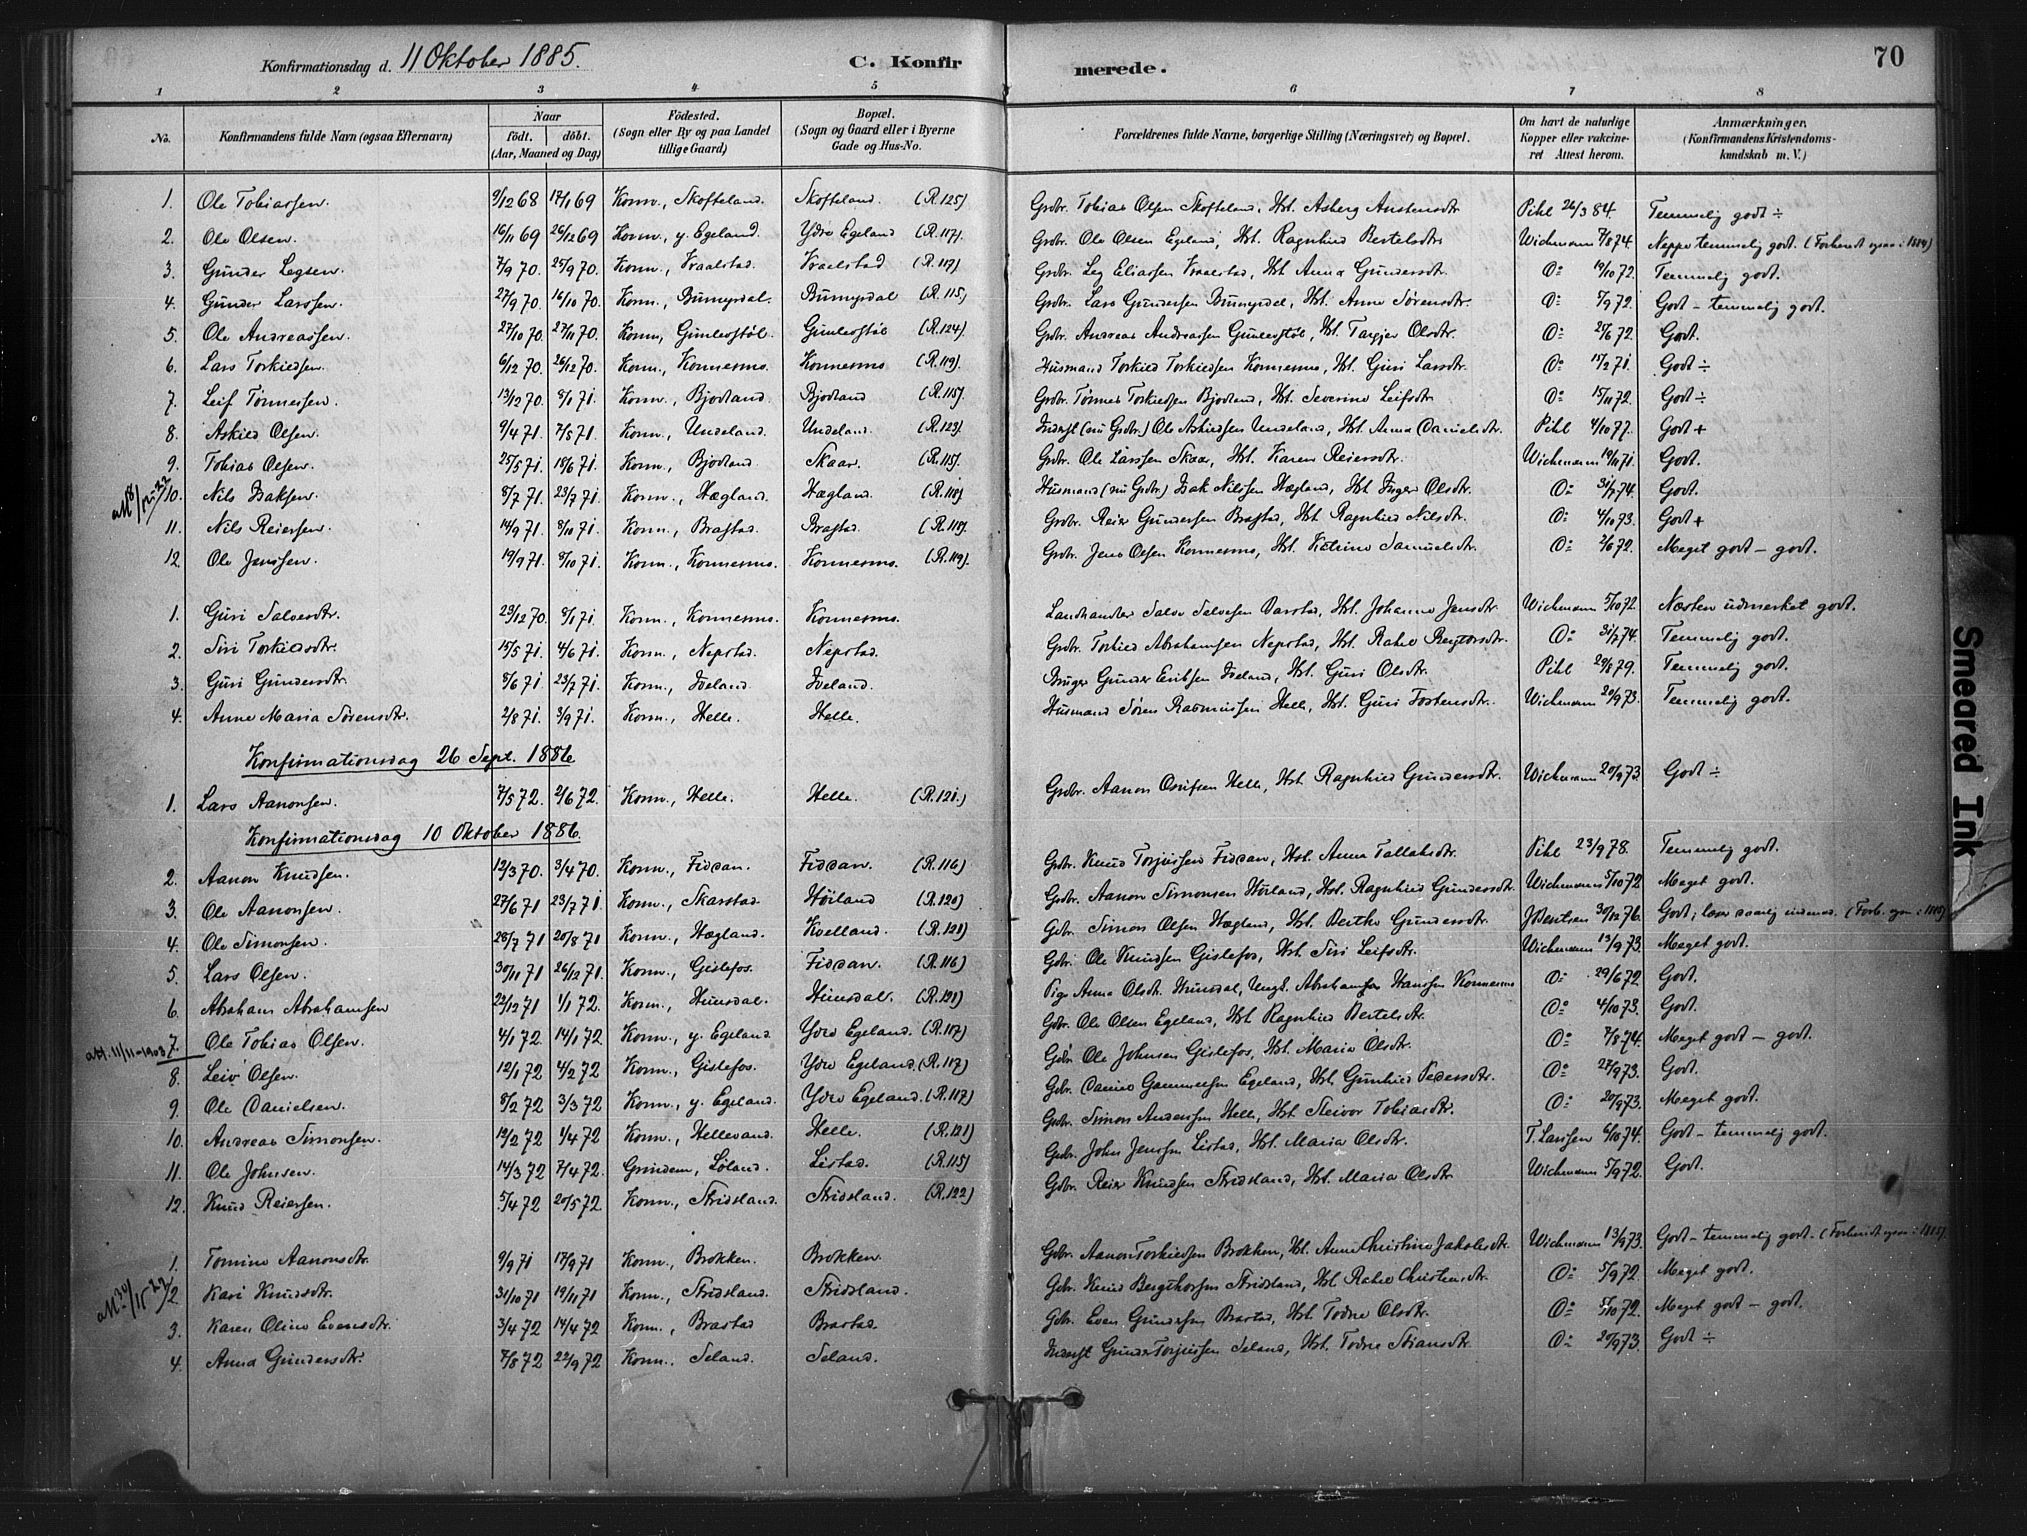 Konfirmationsdag d. 11 Oktober 1885. C. Konfirmerede. 70
1 2 3 4 5 6 7 8
No. Konfirmandens fulde Navn (ogsaa Efternavn) Naar födt. döbt. (Aar, Maaned og Dag) Födested. (Sogn eller By og paa Landet tillige Gaard) Bopæl. (Sogn og Gaard eller i Byerne Gade og Hus-No. Forældrenes fulde Navne, borgerlige Stilling (Næringsvei) og Bopæl. Om havt de naturlige Kopper eller vakcineret Attest herom. Anmærkninger. (Konfirmandens Kristendomskundskab m. V.)
1. Ole Tobiassen. 9/12 68 17/1 69 Konn., Skofteland. Skofteland. (R.125). Grdbr. Tobias Olsen Skofteland, Hst. Asberg Anstensdtr Pihl 26/3 84. Temmelig godt ÷
2. Ole Olsen. 16/11 69 26/12 69 Konn., y. Egeland. Ydre Egeland (R.117). Grdbr. Ole Olsen Egeland, Hst. Ragnhild Bertelsdtr Wichmann 7/8 74. Neppe temmelig godt.
3. Gunder Legsen. 7/9 70. 25/9 70. Konn., Vraalstad. Vraalstad (R.117) Grdbr. Leg Eliassen Vraalstad, Hst. Anna Gundersdtr. O: 19/10 72. Temmelig godt.
4. Gunder Larssen. 27/9 70. 16/10 70. Konn., (R.115) Grdbr. Lars Gundersen Hst. Anne Sørensdtr. O: 7/9 72. Godt - temmelig godt.
5. Ole Andreassen. 27/10 70. 27/11 70. Konn, Gunlesstøl. Gunlesstøl (R.124) Grdbr. Andreas Andreassen Gunlesstøl, Hst. Targjer Olsdtr. O: Godt.
6. Lars Torkildsen. 6/12 70. 26/12 70. Konn., Konnesmo. Konnesmo (R.119) Husmand Torkild Torkildsen Konnesmo, Hst. Guri Larsdtr. O: 15/2 71. Godt ÷
7. Leif Tønnessen. 13/12 70. 8/1 71. Konn., Bjodland. Bjodland (R.115). Grdbr. Tønnes Torkildsen Bjodland, Hst. Severine Leifsdtr O: 15/11 72. Godt ÷
8. Askild Olsen. 9/4 71. 7/5 71. Konn., Undeland. Undeland. (R.123). Inderst (nu Grdbr.) Ole Askildsen Undeland, Hst. Anna Danielsdtr. Pihl 4/10 77. Godt +
9. Tobias Olsen. 25/5 71. 18/6 71. Konn., Bjodland. Skaar. (R.115). Grdbr. Ole Larssen Skaar, Hst. Karen Reiersdtr. Wichmann 19/11 71. Godt.
10. Nils Isaksen. 8/7 71. 23/7 71. Konn., Hægland. Hægland. (R.118) Husmand (nu Grdbr.) Isak Nilssen Hægland, Hst Inger Olsdtr. O: 31/7 74. Godt.
11. Nils Reiersen. 14/9 71. 8/10 71. Konn., Brastad. Brastad. (R.118). Grdbr. Reier Gundersen Brastad, Hst. Ragnhild Nilsdtr. O: 4/10 73. Godt +
12. Ole Jenssen. 19/9 71. 8/10 71. Konn., Konnesmo. Konnesmo. (R.119). Grdbr. Jens Olsen Konnesmo, Hst. Katrine Samuelsdtr. O: 2/6 72. Meget godt - godt.
1. Guri Salvesdtr. 23/12 70. 8/1 71. Konn., Konnesmo. Konnesmo. Landhandler Salve Salvesen Hst. Johanne Jensdtr Wichmann 5/10 72. Næsten udmerket godt.
2. Siri Torkildsdtr. 15/5 71. 4/6 71. Konn., Nepstad. Nepstad. Grdbr. Torkild Abrahamsen Nepstad, Hst. Rahel O: 31/7 74. Temmelig godt.
3. Guri Gundersdtr. 8/6 71. 23/7 71. Konn., Iveland. Iveland. Bruger Gunder Eriksen Iveland, Hst. Guri Olsdtr. Pihl 29/8 79. Temmelig godt.
4. Anne Maria Sørensdtr. 2/8 71. 3/9 71. Konn., Helle. Helle. Husmand Søren Rasmussen Helle, Hst. Guri Torstensdtr. Wichmann 20/9 73. Temmelig godt.
Konfirmationsdag 26 Sept. 1886
1. Lars Aanonsen. 7/5 72. 2/6 72. Konn., Helle. Helle. (R.121.) Grdbr. Aanon Osulfsen Helle, Hst. Ragnhild Gundersdtr. Wichmann 20/9 73 Godt ÷
Konfirmationsdag 10 Oktober 1886.
2. Aanon Knudsen. 12/3 70. 3/4 70. Konn., Fidsan. Fidsan. (R.116) Grdbr. Knud Torjussen Fidsan, Hst. Anna Tallaksdtr. Pihl 23/9 78. Temmelig godt.
3. Ole Aanonsen. 27/6 71 23/7 71. Konn., Skarstad. Høiland. (R.120) Grdbr. Aanon Simonsen Høiland, Hst. Ragnhild Gundersdtr Wichmann 5/10 72 Meget godt.
4. Ole Simonsen. 28/7 71 20/8 71 Konn., Hægland. Kvelland. (R.121) Gdbr. Simon Olsen Hægland, Hst. Berthe Gundersdtr. J Bentsen 30/12 76. Godt;
5. Lars Olsen. 30/11 71 26/12 71. Konn., Gislefos. Fidsan. (R.116) Gdbr. Ole Knudsen Gislefos, Hst. Siri Leifsdtr. Wichmann 13/9 73. Meget godt.
6. Abraham Abrahamsen 22/12 71 1/1 72. Konn., Hunsdal. Hunsdal. (R.121) Pige Anna Olsdtr. Hunsdal, Ungk. Abraham Hanssen Konnesmo O: 29/6 72 Godt.
7. Ole Tobias Olsen. 4/1 72 14/1 72. Konn., y. Egeland. Ydre Egeland. (R.117) Gdbr. Ole Olsen Egeland, Hst Ragnhild Bertelsdtr. O: 4/10 73. Godt.
8. Leiv Olsen. 12/1 72 4/2 72 Konn., Gislefos. Ydre Egeland. (R.117) Gdbr Ole Johnsen Gislefos, Hst. Maria Olsdtr. O: 7/8 74. Meget godt - godt.
9. Ole Danielsen. 8/2 72 3/3 72 Konn., y. Egeland. Ydre Egeland. (R.117) Gdbr. Daniel Gammelsen Egeland, Hst. Gunhild Pedersdtr. O: 27/9 73. Godt.
10. Andreas Simonsen. 19/2 72 1/4 72 Konn., Hellevand. Helle. (R.121) Gdbr. Simon Andersen Helle, Hst Steivor Tobiasdtr. O: 20/9 73. Meget godt.
11. Ole Johnsen. 14/3 72 7/4 72. Grindem, Løland. Listad. (R.115) Gdbr. John Jenssen Listad, Hst. Maria Olsdtr. T. Larssen 6/10 74. Godt - temmelig godt.
12. Knud Reiersen. 5/4 72 20/5 72 Konn., Stridsland. Stridsland. (R.122) Gdbr. Reier Knudsen Stridsland, Hst. Maria Olsdtr. Wichmann 5/9 72. Godt.
1. Tomine Aanonsdtr. 9/9 71 17/9 71 Konn., Brokken. Brokken. Gdbr. Aanon Torkildsen Brokken, Hst. Anne Christine Jakobsdtr. Wichmann 13/9 73. Godt - temmelig godt -
2. Kari Knudsdtr. 31/10 71 19/11 71 Konn., Stridsland. Stridsland. Gdbr. Knud Bergthorsen Stridsland, Hst Rahel Christensdtr. O: 5/9 72. Meget godt.
3. Karen Oline Evensdtr. 3/4 72 14/4 72 Konn., Brastad Brastad. Gdbr. Even Gundersen Brastad, Hst. Todne Olsdtr. O: 5/10 72. Meget godt - godt.
4. Anna Gundersdtr. 7/8 72 22/9 72 Konn., Seland. Seland. Inderst Gunder Torjussen Seland, Hst. Todne Stiansdtr. O: 20/9 73. Godt ÷
att. 11/11-1903
Smeared Ink